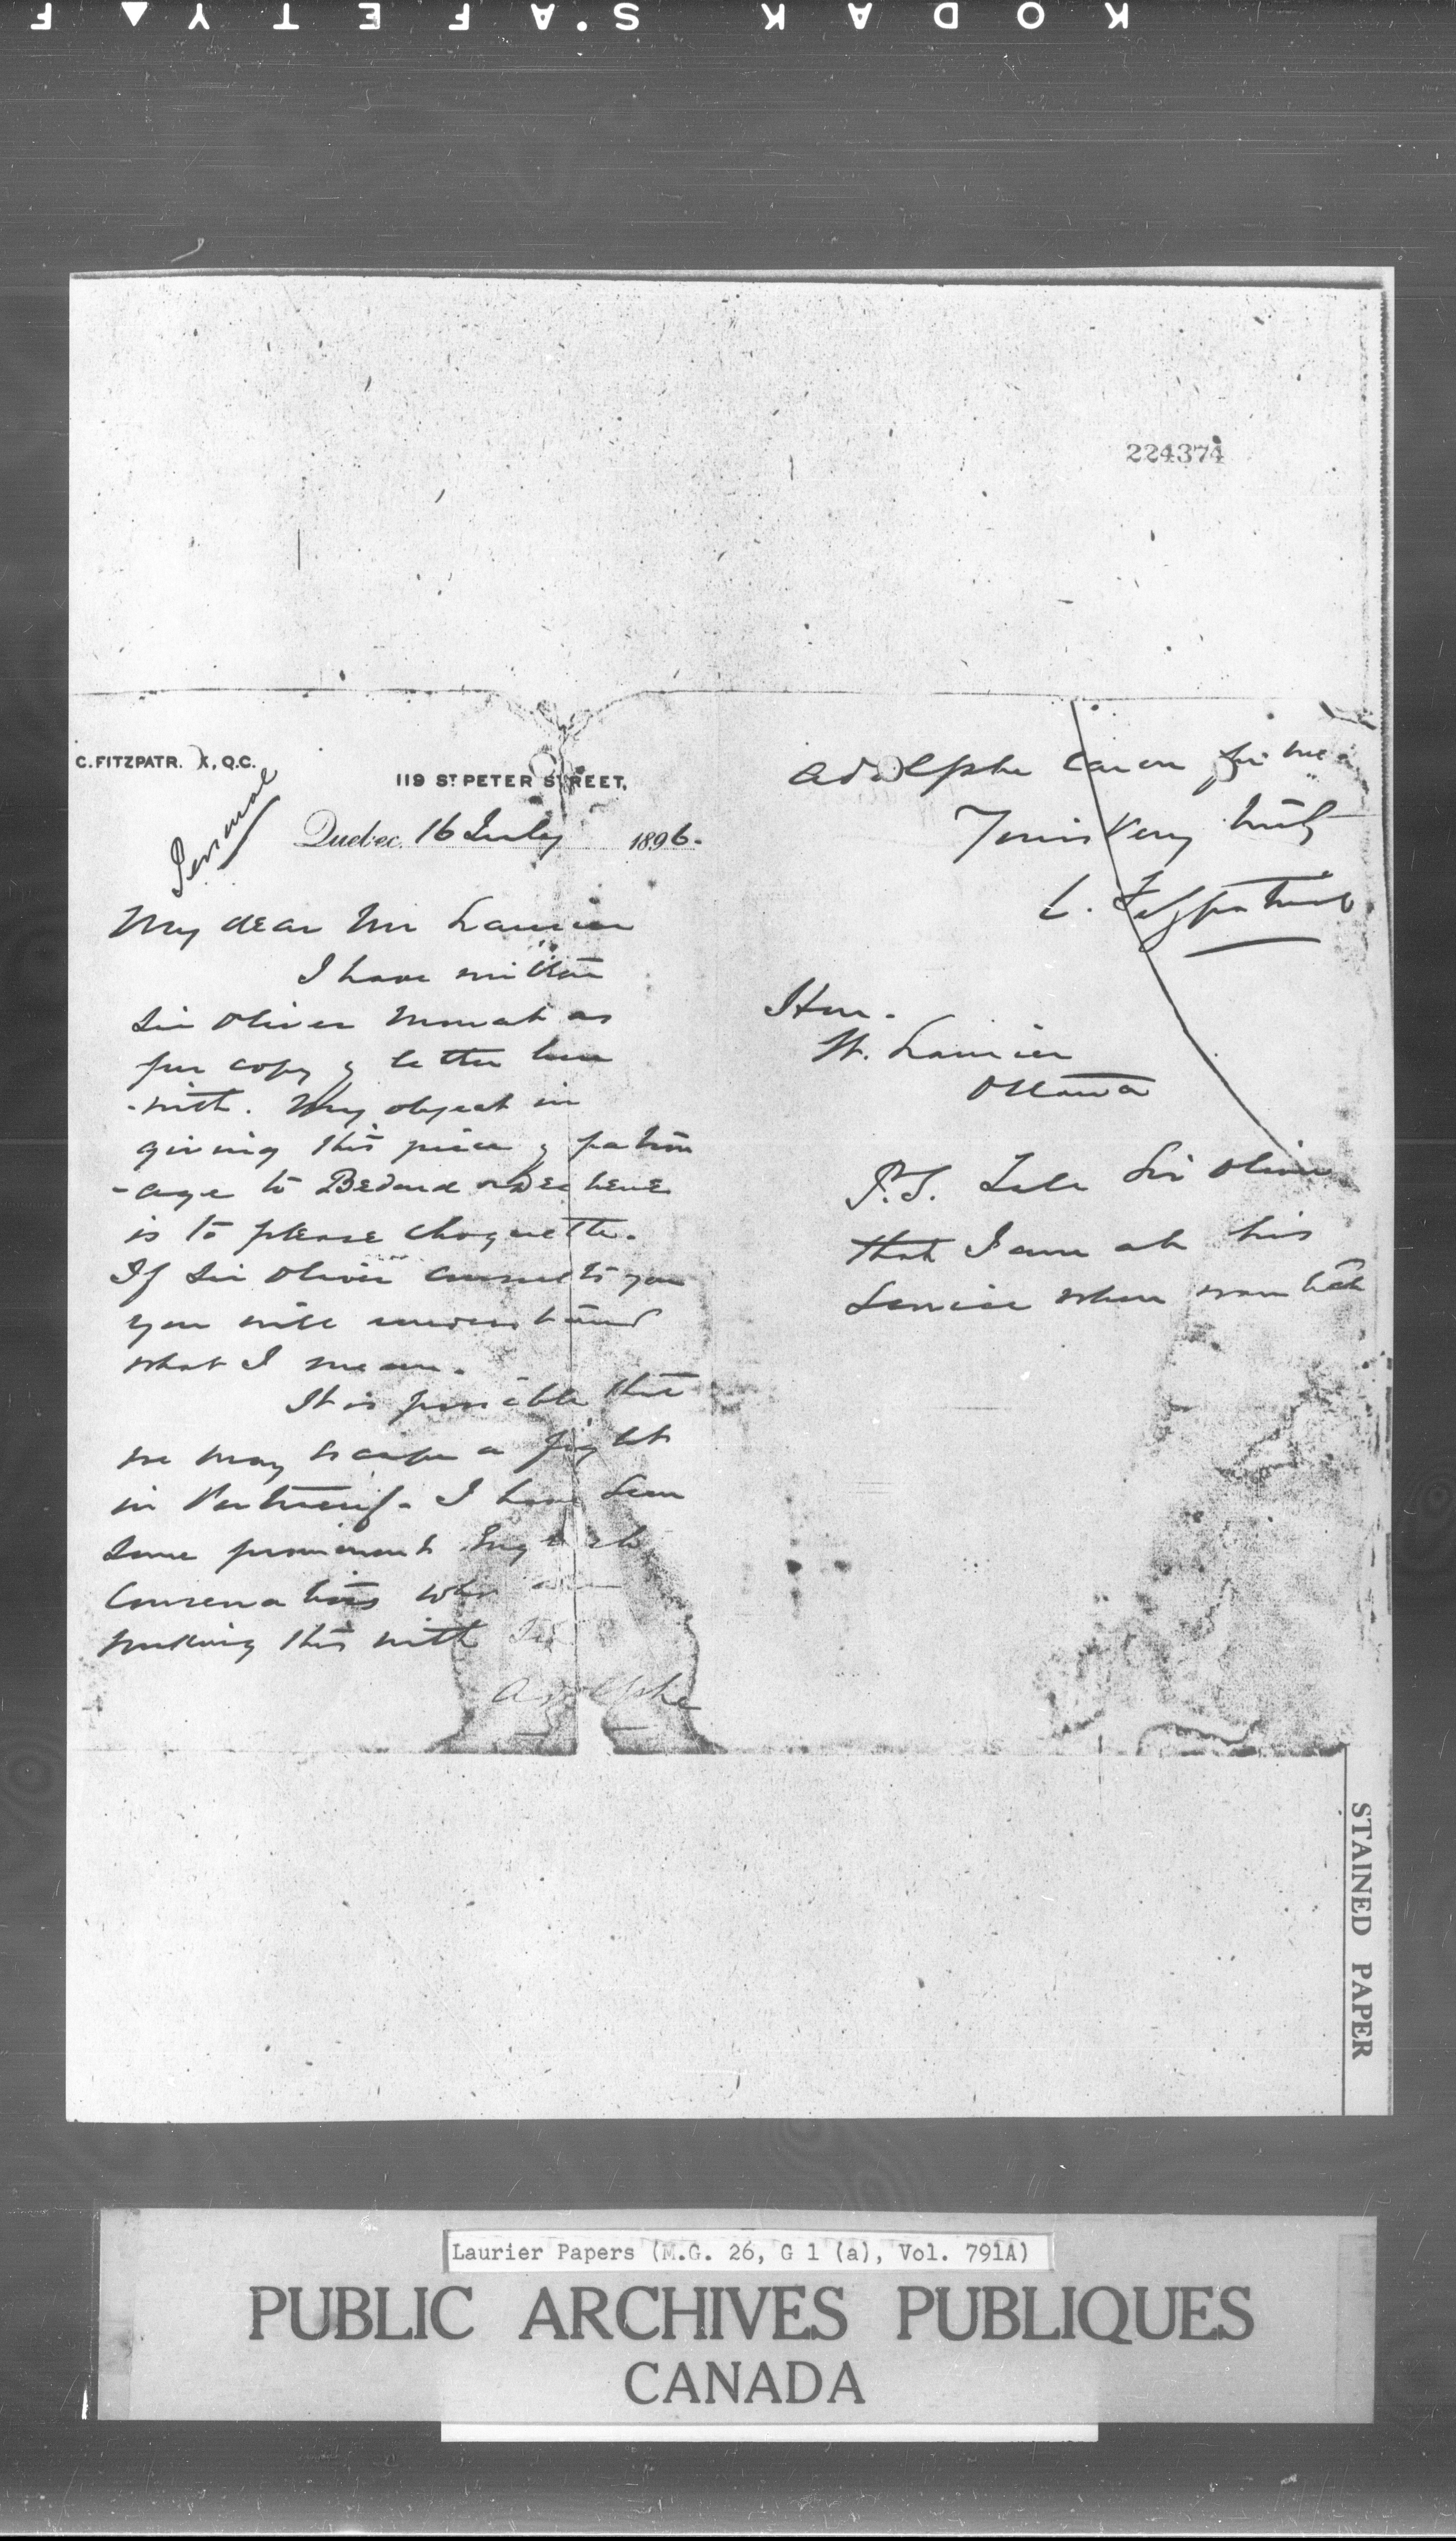 KODAK S'AFETY F
224374
C. FITZPATR. K, Q.C.
119 ST. PETER STREET,
Personal
Quebec, 16 July 1896.
My dear Mr Laurier
I have written
Sir Oliver Mowat as
per copy of letter here
-with. My object in
giving this piece of patron
-age to Bedard & Dechene
is to please Choquette.
If Sir Oliver consults you
you will understand
what I mean.
It is possible that
we may escape a fight
in Portneuf. I have seen
some prominent English
Conservatives who are
working this with Sir
Adolphe
Adolphe Caron for me
Yours very truly
C. Fitzpatrick
Hon.
W. Laurier
Ottawa
P.S. Tell Sir Oliver
that I am at his
service when wanted
STAINED PAPER
Laurier Papers (M.G. 26, G 1 (a), Vol. 791A)
PUBLIC ARCHIVES PUBLIQUES
CANADA